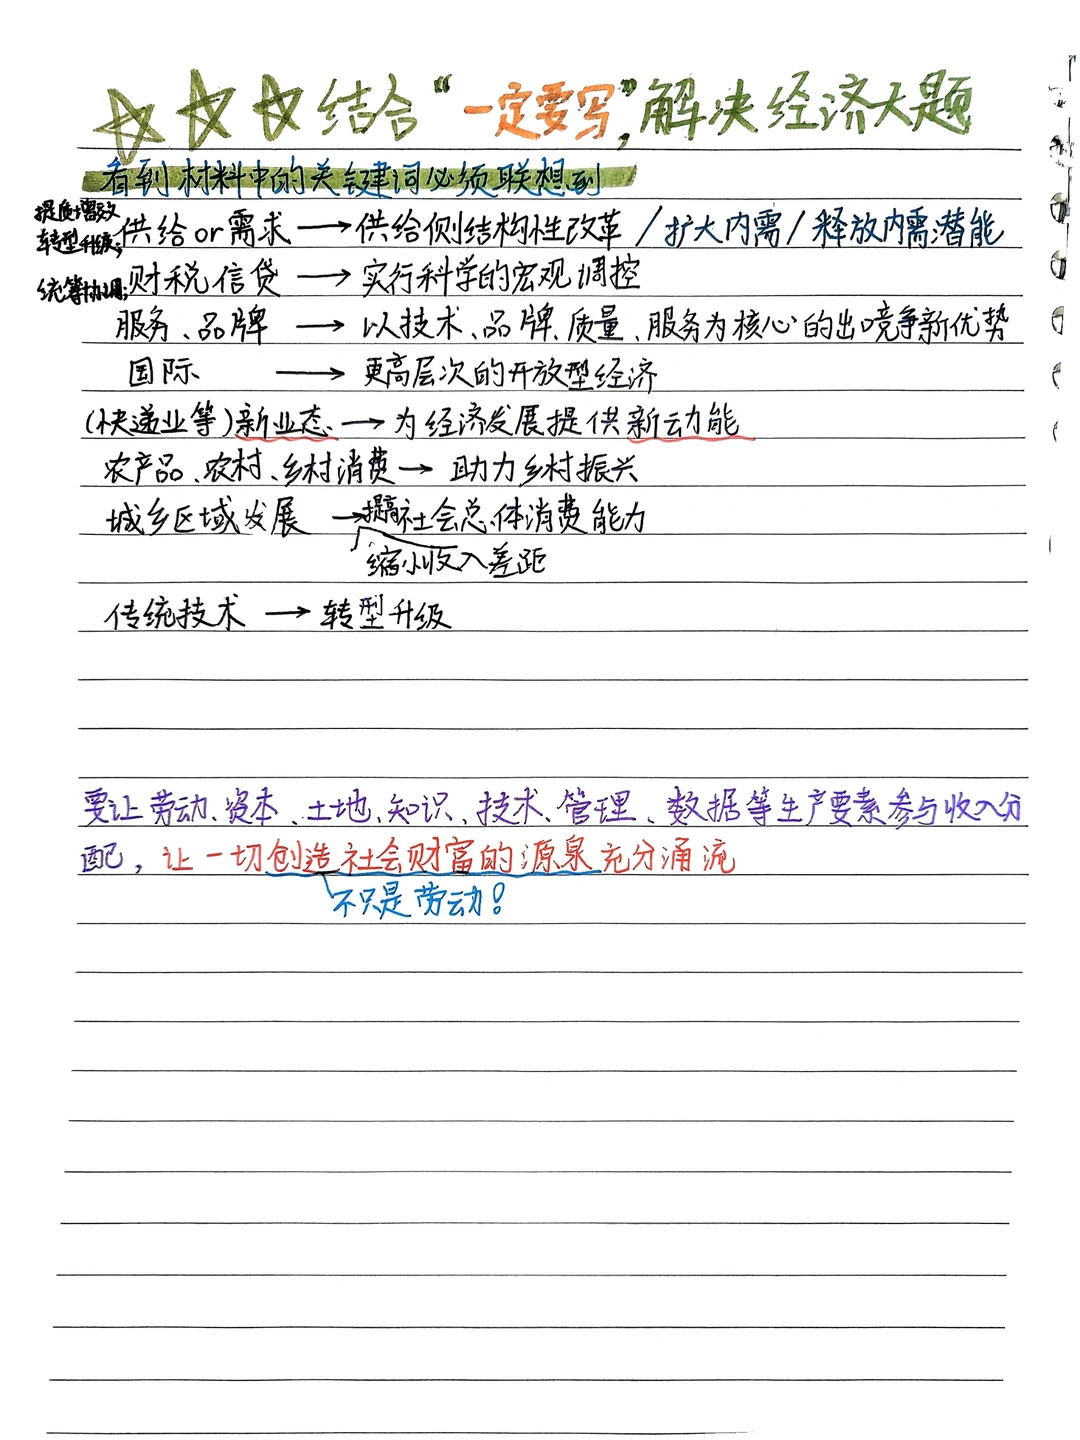 ☆☆☆结合“一定要写”,解决经济大题
看到材料中的关键词必须联想到
提质增效
转型升级;
统筹协调;
供给or需求→供给侧结构性改革/扩大内需/释放内需潜能
财税信贷→实行科学的宏观调控
服务、品牌→以技术、品牌、质量、服务为核心的出口竞争新优势
国际→更高层次的开放型经济
(快递业等)新业态→为经济发展提供新动能
农产品、农村、乡村消费→助力乡村振兴
城乡区域发展→提高社会总体消费能力
缩小收入差距
传统技术→转型升级
要让劳动、资本、土地、知识、技术、管理、数据等生产要素参与收入分
配,让一切创造社会财富的源泉充分涌流
不只是劳动!